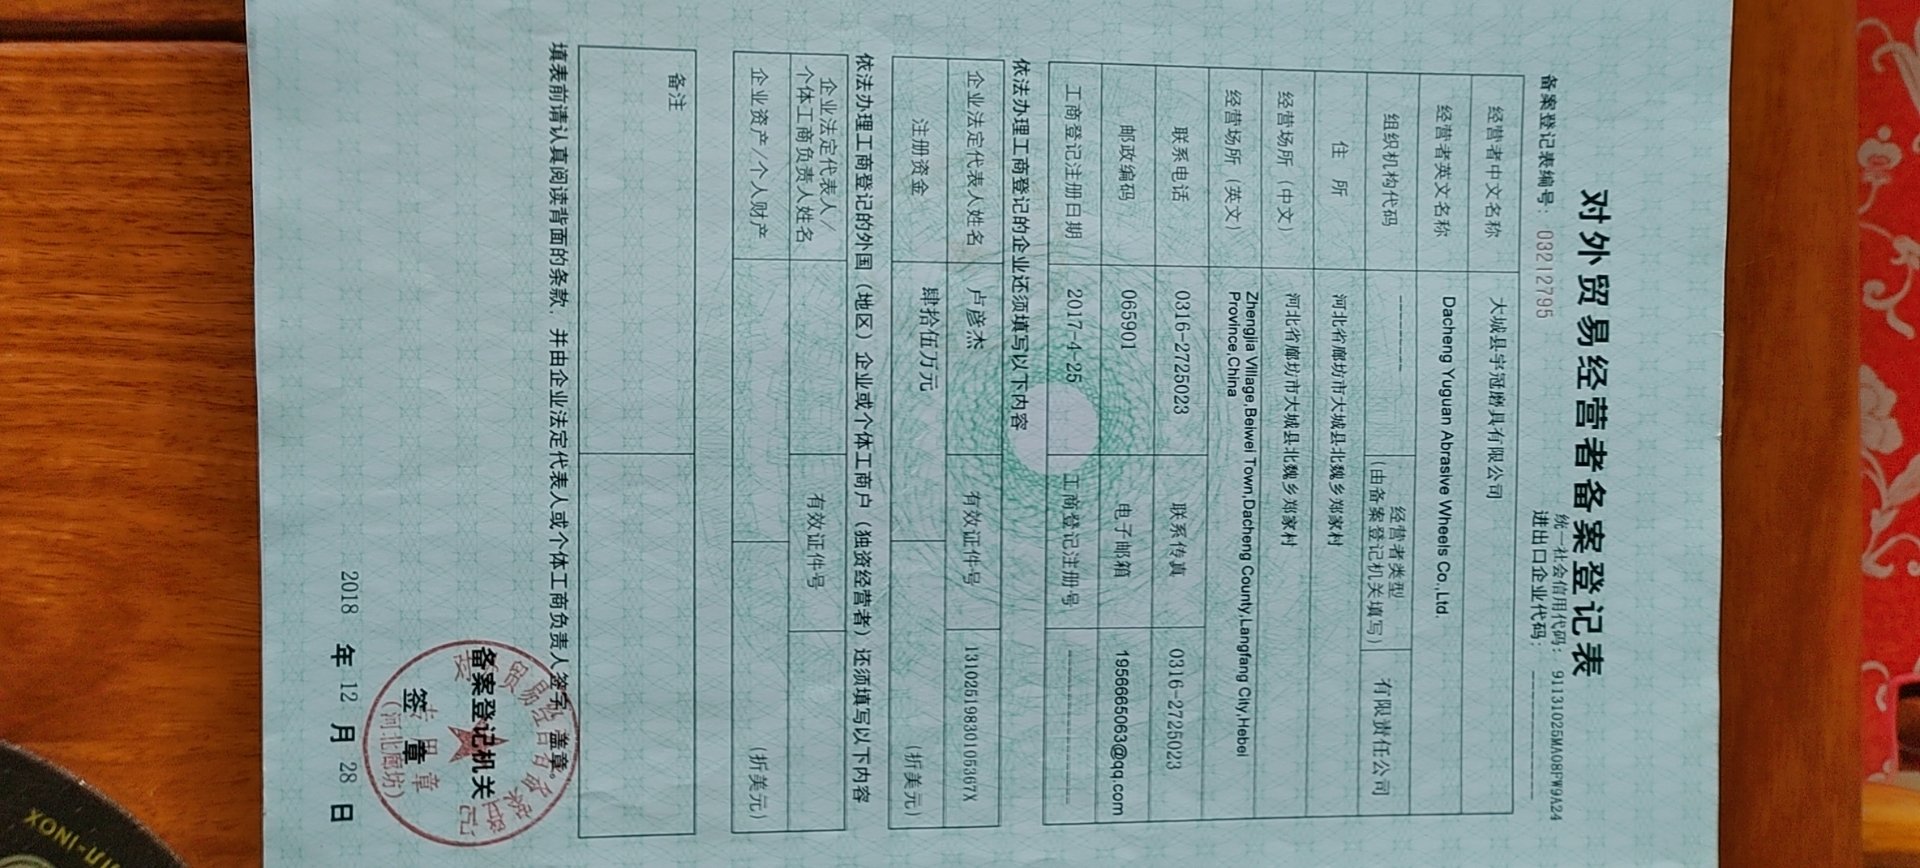 对外贸易经营者备案登记表
统一社会信用代码：91131025MA08FW9A24
备案登记表编号：03212795
进出口企业代码：
经营者中文名称 大城县宇冠磨具有限公司
经营者英文名称 Dacheng Yuguan Abrasive Wheels Co.,Ltd.
组织机构代码 -------- 经营者类型
（由备案登记机关填写） 有限责任公司
住 所 河北省廊坊市大城县北魏乡郑家村
经营场所（中文） 河北省廊坊市大城县北魏乡郑家村
经营场所（英文） Zhengjia Village,Beiwei Town,Dacheng County,Langfang City,Hebei
Province,China
联系电话 0316-2725023 联系传真 0316-2725023
邮政编码 065901 电子邮箱 1956665063@qq.com
工商登记注册日期 2017-4-25 工商登记注册号 --------
依法办理工商登记的企业还须填写以下内容
企业法定代表人姓名 卢彦杰 有效证件号 13102519830105367X
注册资金 肆拾伍万元 （折美元）
依法办理工商登记的外国（地区）企业或个体工商户（独资经营者）还须填写以下内容
企业法定代表人/
个体工商负责人姓名 有效证件号
企业资产/个人财产 （折美元）
备注
填表前请认真阅读背面的条款，并由企业法定代表人或个体工商负责人签字、盖章。
备案登记机关
签 章
（河北廊坊）
2018 年 12 月 28 日